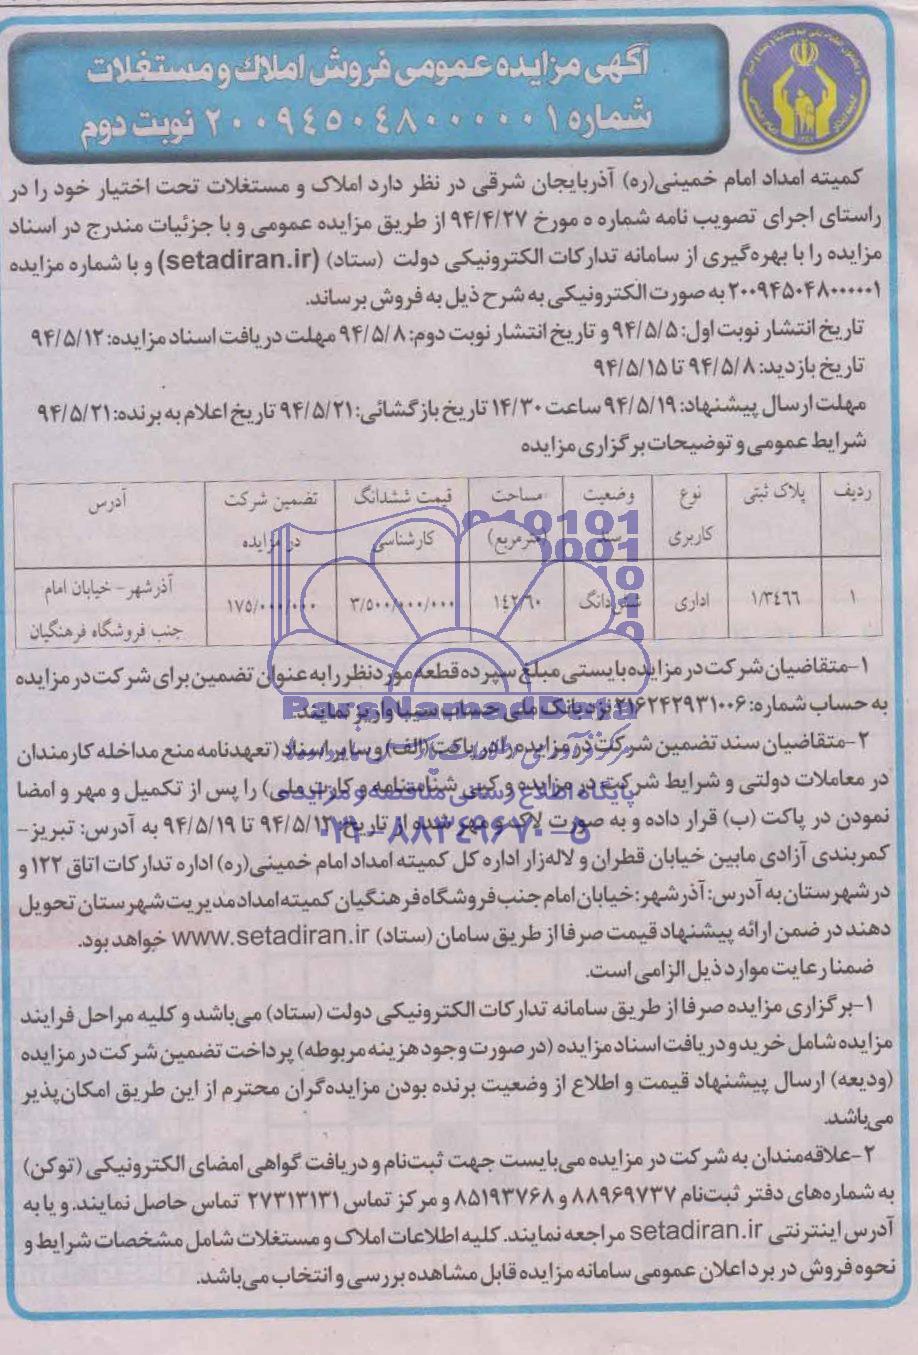 آگهی مزایده عمومی فروش املاک و مستغلات
شماره ۲۰۰۹۴۵۰۴۸۰۰۰۰۰۱ نوبت دوم
کمیته امداد امام خمینی(ره) آذربایجان شرقی در نظر دارد املاک و مستغلات تحت اختیار خود را در
راستای اجرای تصویب نامه شماره ۵ مورخ ۹۴/۴/۲۷ از طریق مزایده عمومی و با جزئیات مندرج در اسناد
مزایده را با بهره‌گیری از سامانه تدارکات الکترونیکی دولت (ستاد) (setadiran.ir) و با شماره مزایده
۲۰۰۹۴۵۰۴۸۰۰۰۰۰۱ به صورت الکترونیکی به شرح ذیل به فروش برساند.
تاریخ انتشار نوبت اول: ۹۴/۵/۵ و تاریخ انتشار نوبت دوم: ۹۴/۵/۸ مهلت دریافت اسناد مزایده: ۹۴/۵/۱۲
تاریخ بازدید: ۹۴/۵/۸ تا ۹۴/۵/۱۵
مهلت ارسال پیشنهاد: ۹۴/۵/۱۹ ساعت ۱۴/۳۰ تاریخ بازگشائی: ۹۴/۵/۲۱ تاریخ اعلام به برنده: ۹۴/۵/۲۱
شرایط عمومی و توضیحات برگزاری مزایده
ردیف پلاک ثبتی نوع کاربری وضعیت سند مساحت (مترمربع) قیمت ششدانگ کارشناسی تضمین شرکت در مزایده آدرس
۱ ۱/۳۴۶۶ اداری ششدانگ ۱۴۲/۶۰ ۳/۵۰۰/۰۰۰/۰۰۰ ۱۷۵/۰۰۰/۰۰۰ آذرشهر- خیابان امام جنب فروشگاه فرهنگیان
۱-متقاضیان شرکت در مزایده بایستی مبلغ سپرده قطعه مورد نظر را به عنوان تضمین برای شرکت در مزایده
به حساب شماره: ۲۱۶۲۴۲۹۳۱۰۰۶ نزد بانک ملی حساب سیبا واریز نمایند.
۲-متقاضیان سند تضمین شرکت در مزایده را در پاکت (الف) و سایر اسناد (تعهدنامه منع مداخله کارمندان
در معاملات دولتی و شرایط شرکت در مزایده و کپی شناسنامه و کارت ملی) را پس از تکمیل و مهر و امضا
نمودن در پاکت (ب) قرار داده و به صورت لاک و مهر شده از تاریخ ۹۴/۵/۱۲ تا ۹۴/۵/۱۹ به آدرس: تبریز-
کمربندی آزادی مابین خیابان قطران و لاله‌زار اداره کل کمیته امداد امام خمینی(ره) اداره تدارکات اتاق ۱۲۲ و
در شهرستان به آدرس: آذرشهر: خیابان امام جنب فروشگاه فرهنگیان کمیته امداد مدیریت شهرستان تحویل
دهند در ضمن ارائه پیشنهاد قیمت صرفا از طریق سامان (ستاد) www.setadiran.ir خواهد بود.
ضمنا رعایت موارد ذیل الزامی است.
۱-برگزاری مزایده صرفا از طریق سامانه تدارکات الکترونیکی دولت (ستاد) می‌باشد و کلیه مراحل فرایند
مزایده شامل خرید و دریافت اسناد مزایده (در صورت وجود هزینه مربوطه) پرداخت تضمین شرکت در مزایده
(ودیعه) ارسال پیشنهاد قیمت و اطلاع از وضعیت برنده بودن مزایده‌گران محترم از این طریق امکان‌پذیر
می‌باشد.
۲-علاقه‌مندان به شرکت در مزایده می‌بایست جهت ثبت‌نام و دریافت گواهی امضای الکترونیکی (توکن)
به شماره‌های دفتر ثبت‌نام ۸۸۹۶۹۷۳۷ و ۸۵۱۹۳۷۶۸ و مرکز تماس ۲۷۳۱۳۱۳۱ تماس حاصل نمایند. و یا به
آدرس اینترنتی setadiran.ir مراجعه نمایند. کلیه اطلاعات املاک و مستغلات شامل مشخصات شرایط و
نحوه فروش در برد اعلان عمومی سامانه مزایده قابل مشاهده بررسی و انتخاب می‌باشد.
ParsNamadData
پایگاه اطلاع رسانی مناقصه و مزایده
۰۲۱-۸۸۳۴۹۶۷۰-۵